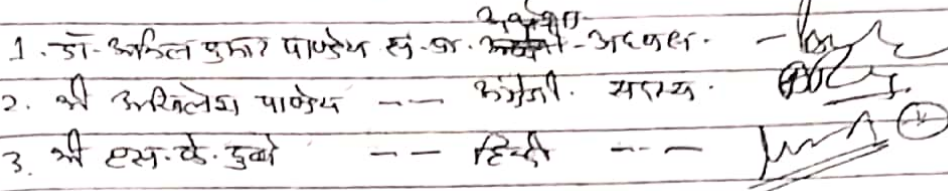 1. डॉ- अनिल कुमार पाण्डेय स. प्रा. - अध्यक्ष.
2. श्री अखिलेश पाण्डेय -- अंग्रेजी. सदस्य.
3. श्री एस. के. दुबे -- हिन्दी --